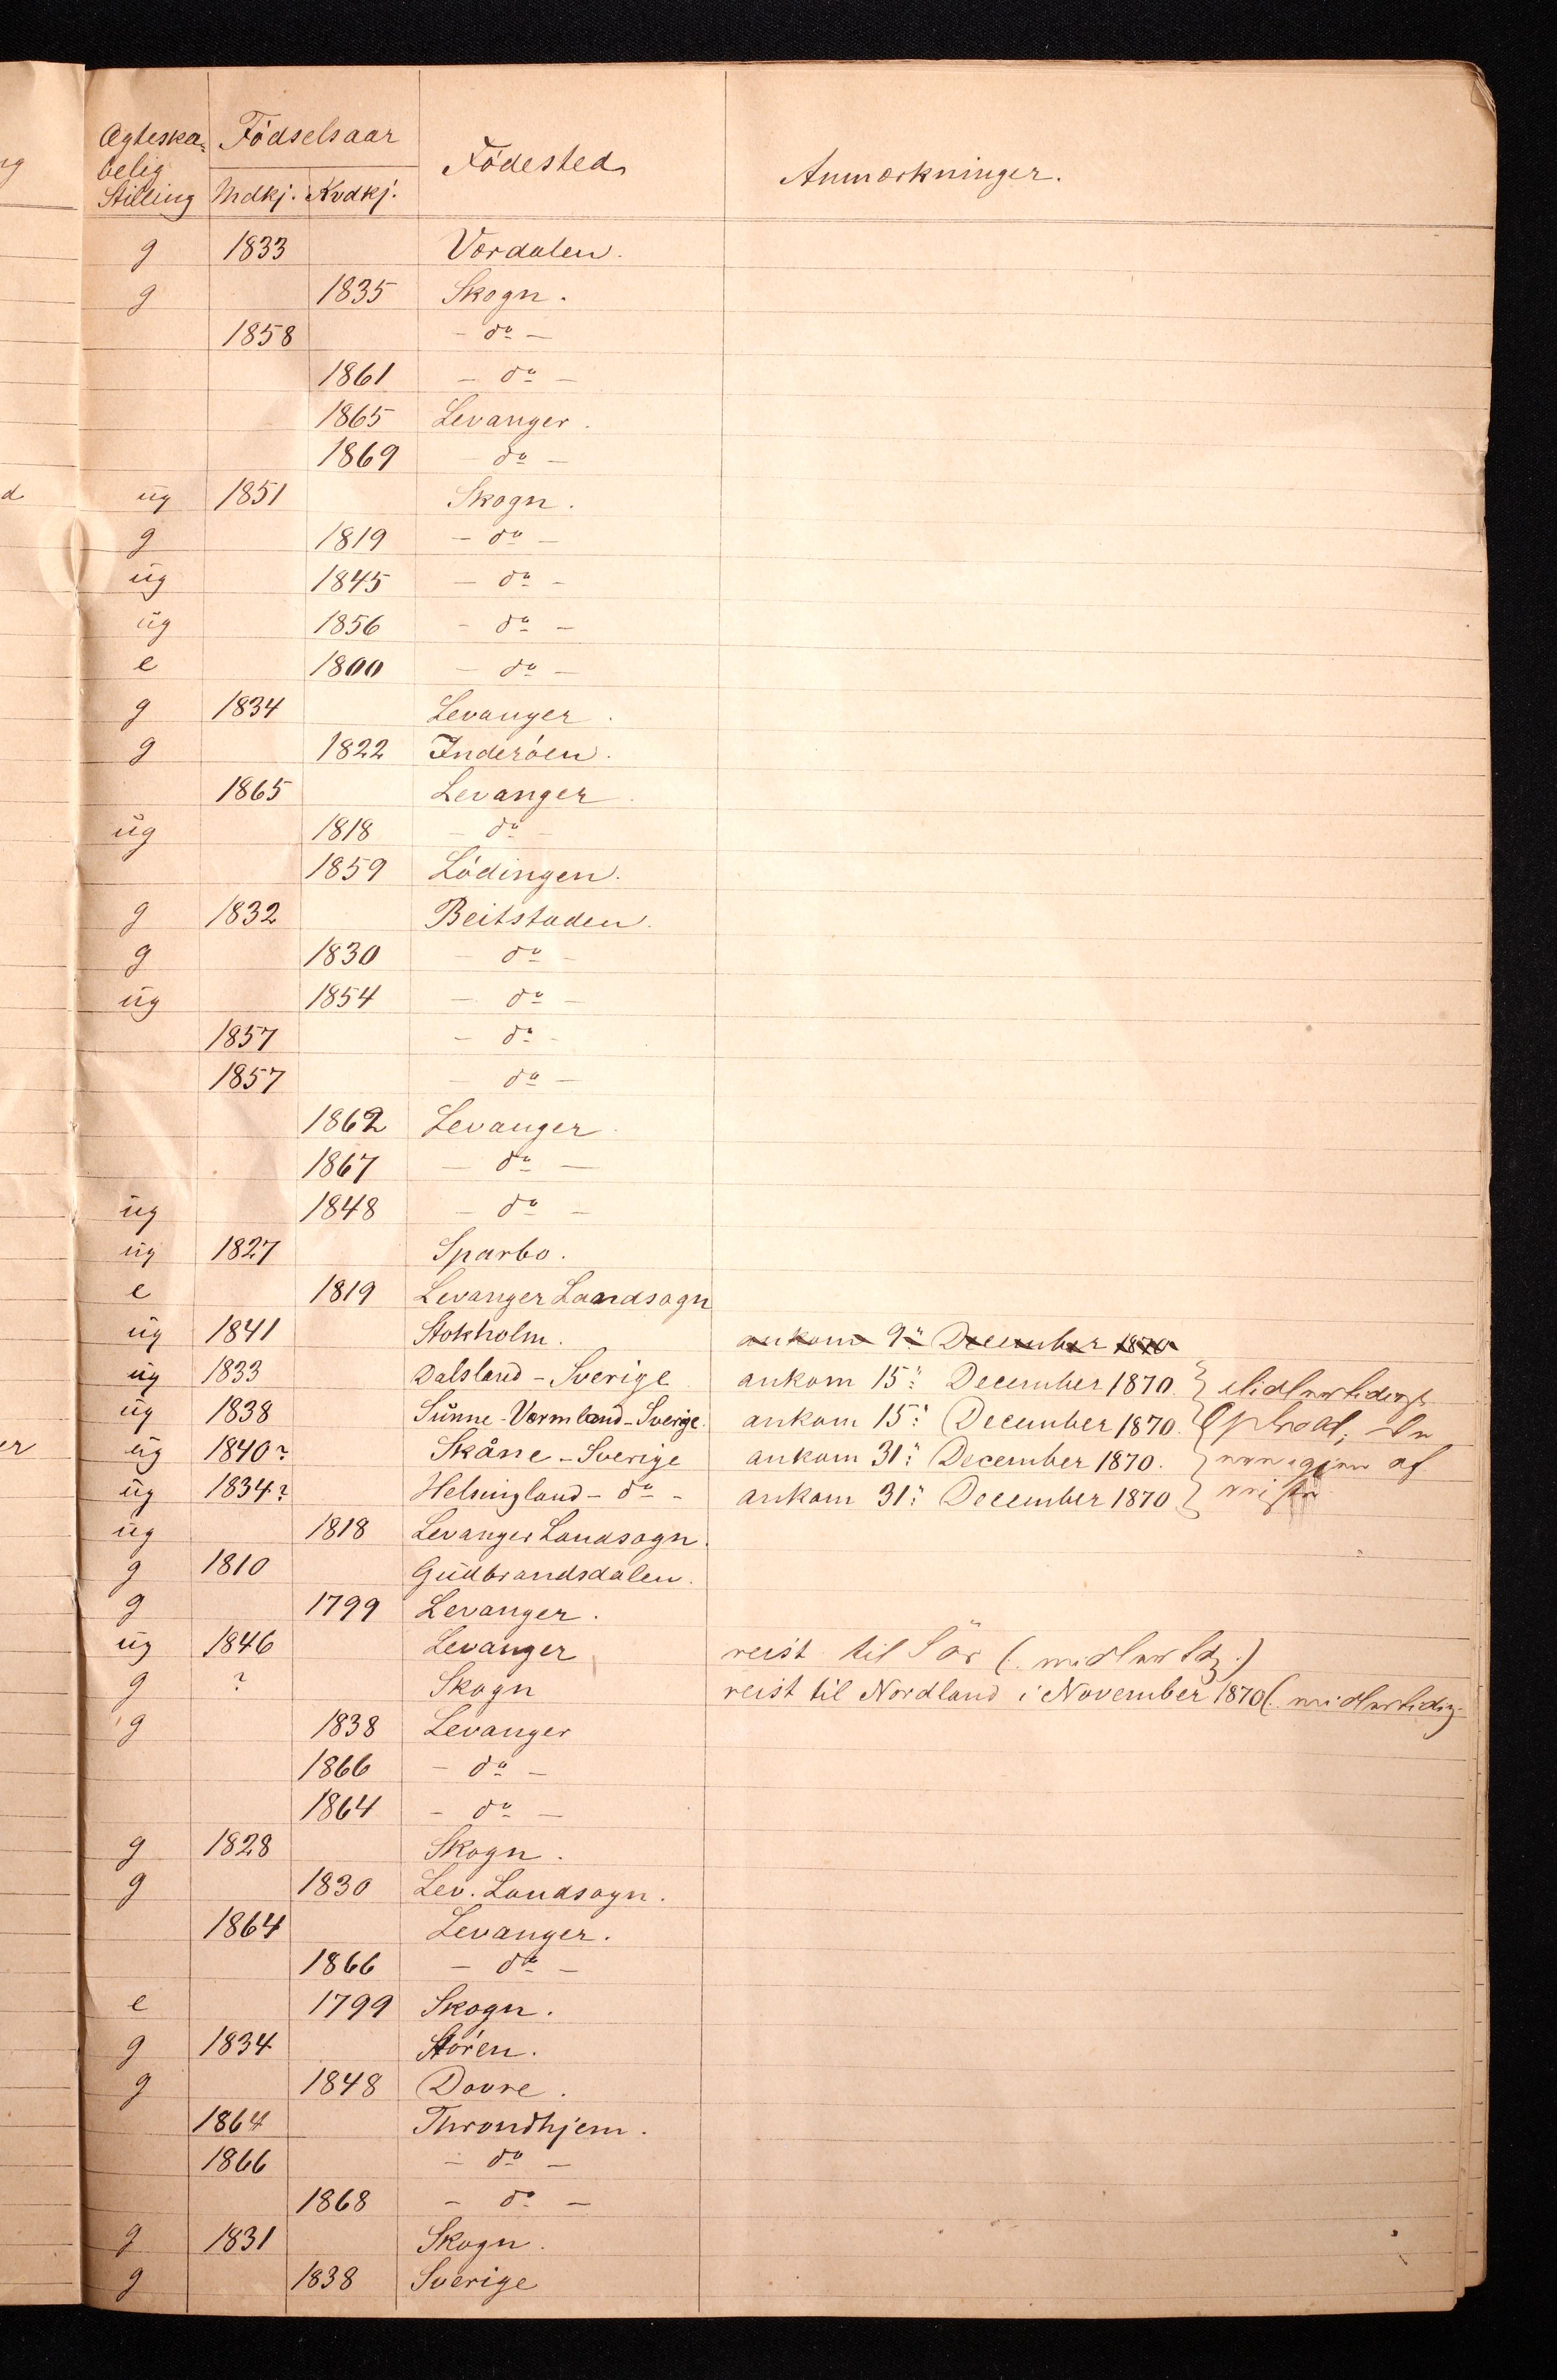 Ægteska=
belig
Stilling
Födselsaar
Mdkj. Kvdkj.
Födested
Anmærkninger.
g 1833 Værdalen.
g 1835 Skogn.
1858 - do -
1861 - do -
1865 Levanger.
1869 - do -
ug 1851 Skogn.
g 1819 - do -
ug 1845 - do -
ug 1856 - do -
e 1800 - do -
g 1834 Levanger.
g 1822 Inderöen.
1865 Levanger.
ug 1818 - do -
1859 Lödingen.
g 1832 Beitstaden.
g 1830 - do -
ug 1854 - do -
1857 - do -
1857 - do -
1862 Levanger.
1867 - do -
ug 1848 - do -
ug 1827 Sparbo.
e 1819 Levanger Landsogn
ug 1841 Stokholm. ankom 9: December 1870
ug 1833 Dalsland - Sverige ankom 15: December 1870.
ug 1838 Sunne - Vermland - Sverige. ankom 15: December 1870.
ug 1840? Skåne - Sverige ankom 31: December 1870. af
ug 1834? Helsingland - do - ankom 31: December 1870
ug 1818 Levanger Landsogn.
g 1810 Gudbrandsdalen.
g 1799 Levanger.
ug 1846 Levanger reist til Sör (: midlertdg.)
g ? Skogn reist til Nordland i November 1870 (: midlertidig
g 1838 Levanger
1866 - do -
1864 - do -
g 1828 Skogn.
g 1830 Lev. Landsogn.
1864 Levanger.
1866 - do -
e 1799 Skogn.
g 1834 Stören.
g 1848 Dovre.
1864 Throndhjem.
1866 - do -
1868 - do -
g 1831 Skogn.
g 1838 Sverige